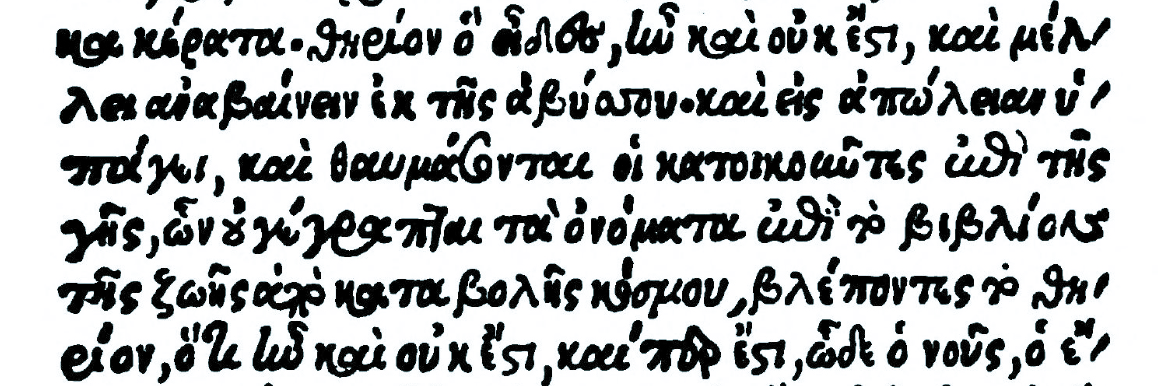 κα κέρατα. θηρίον ὃ εἶδες, ἦν καὶ οὐκ ἔστι, καὶ μέλ/
λει αναβαίνειν ἐκ τῆς ἀβύσσου. καὶ εἰς ἀπώλειαν ὑ/
πάγει, καὶ θαυμάσονται οἱ κατοικοῦντες ἐπὶ τῆς
γῆς, ὧν οὐ γέγραπται τὰ ὀνόματα ἐπὶ τὸ βιβλίον
τῆς ζωῆς ἀπὸ καταβολῆς κόσμου, βλέποντες τὸ θη/
ρίον, ὅτι ἦν καὶ οὐκ ἔστι, καί πὰρ ἔστι, ὧδε ὁ νοῦς, ὁ ἔ/